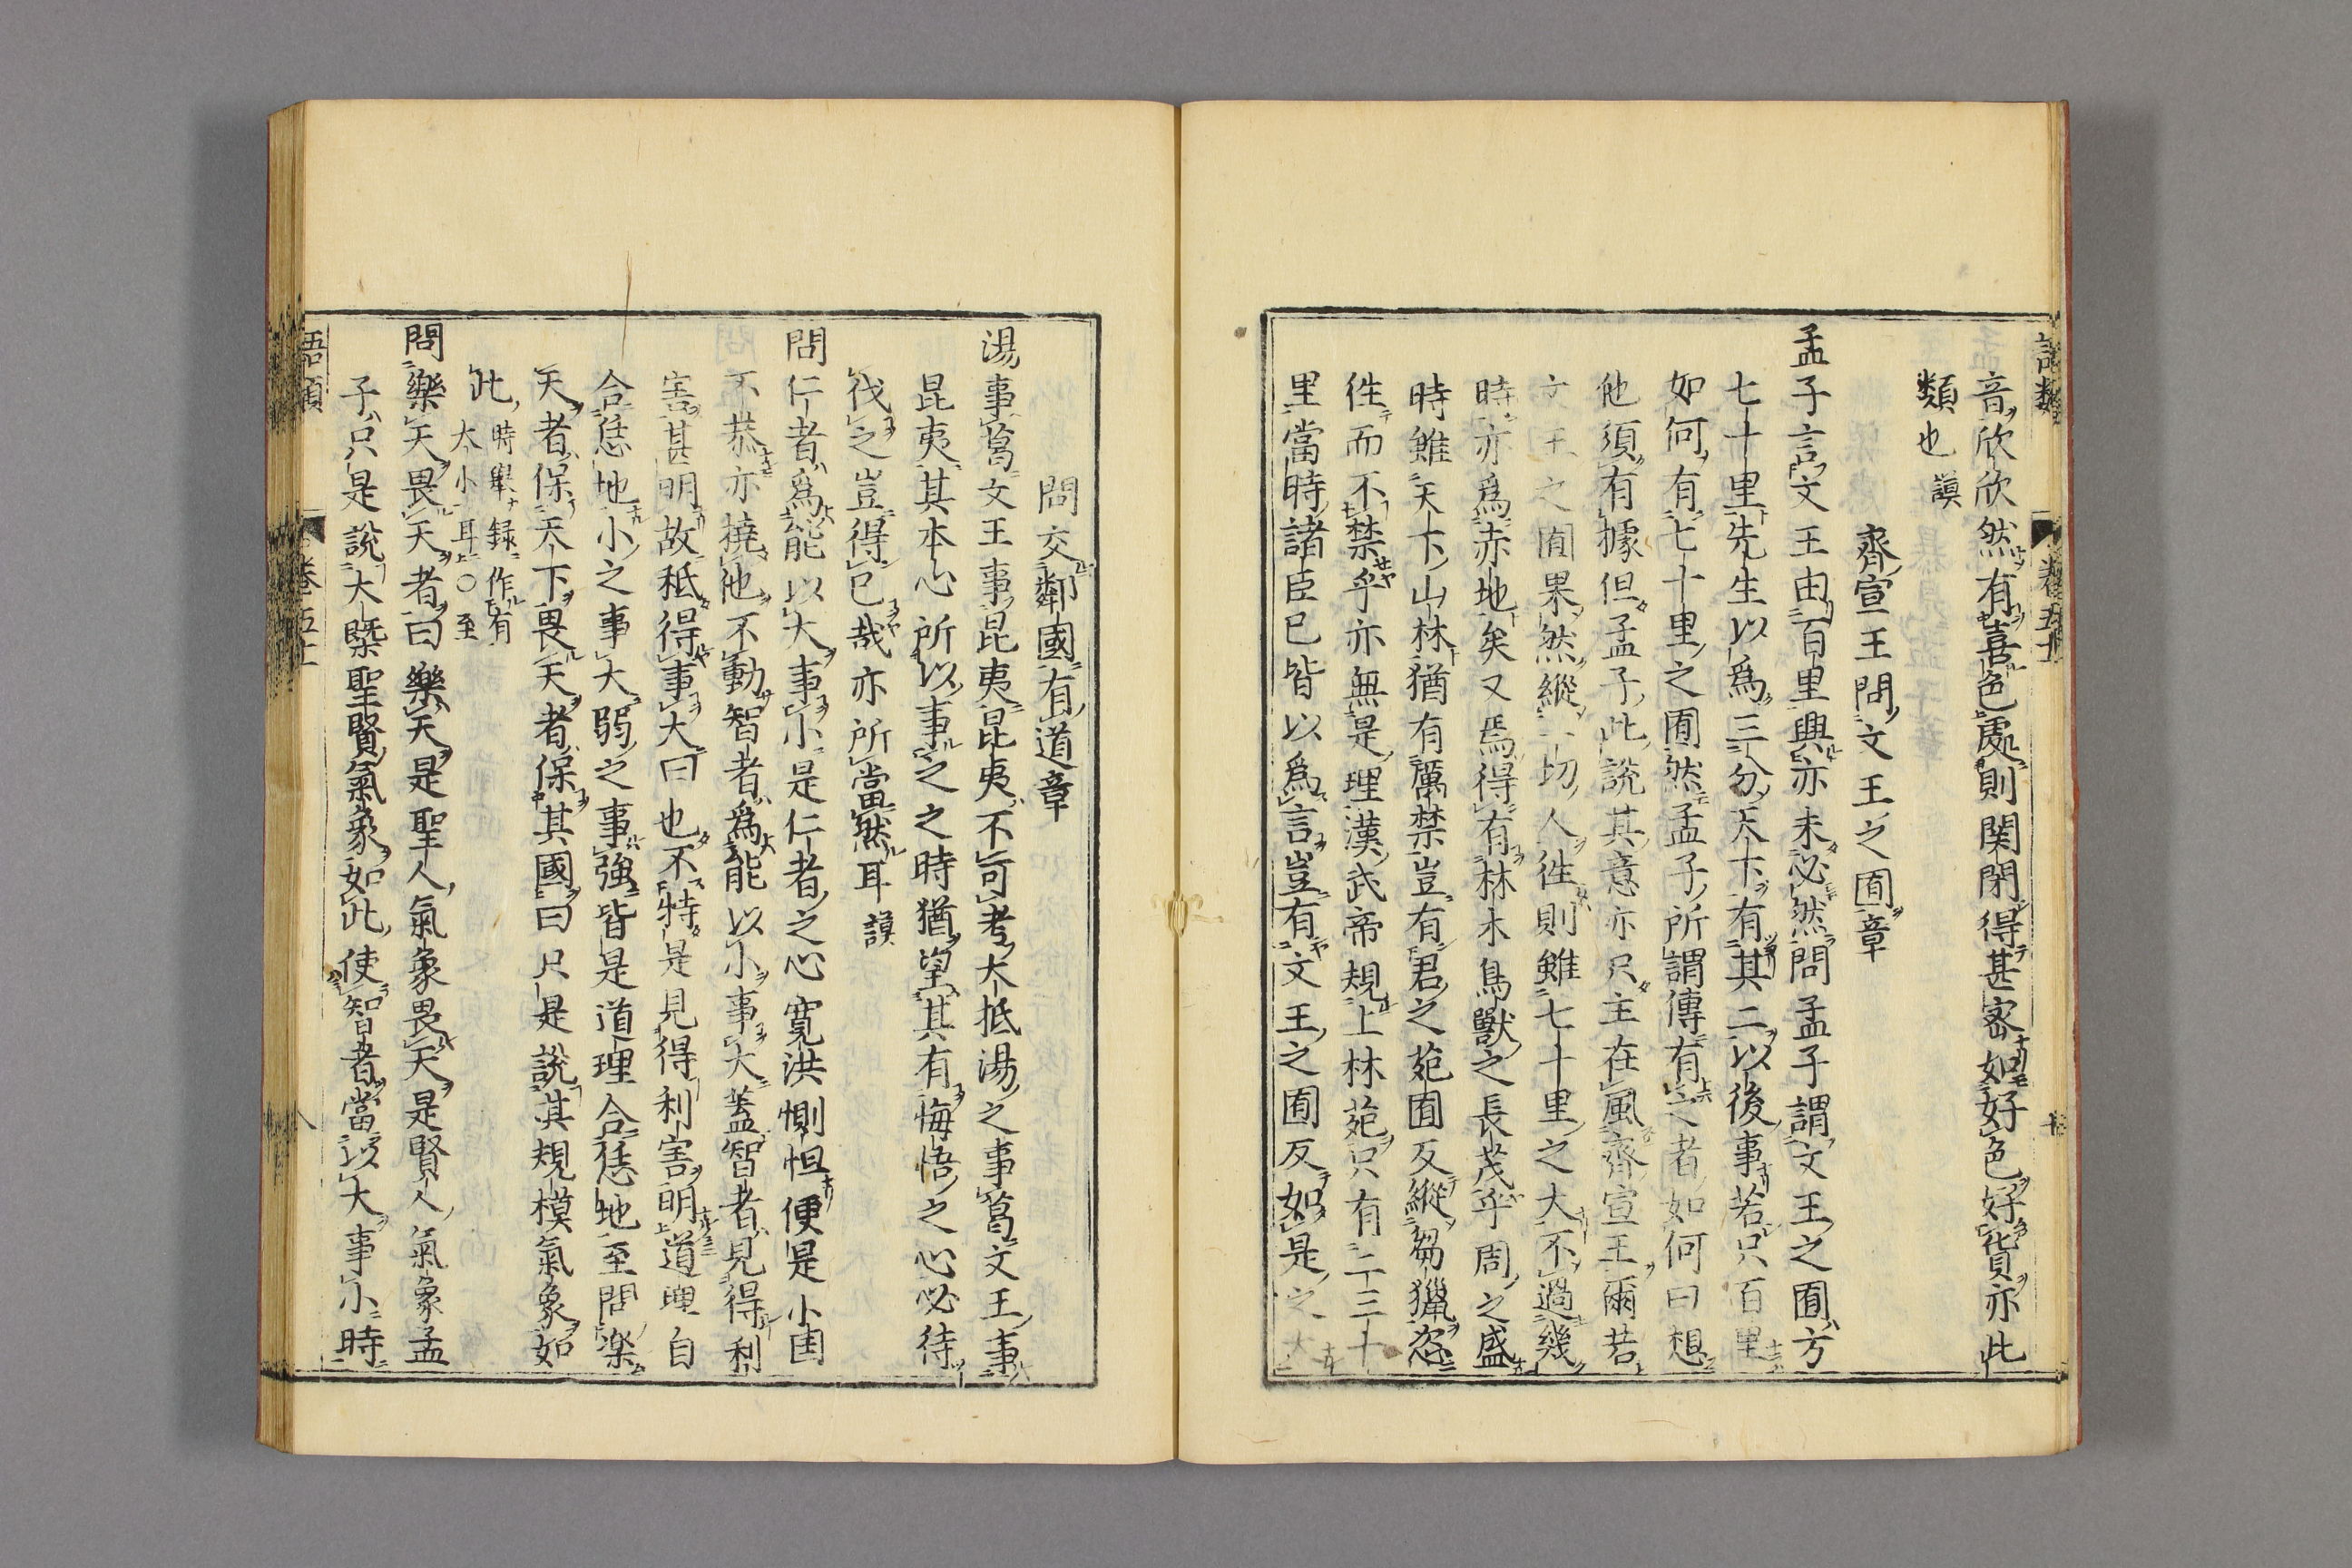 語類
卷五十一
十
音欣欣然有喜色處則関閉得甚密如好色好貨亦此
類也謨
齊宣王問文王之囿章
孟子言文王由百里興亦未必然問孟子謂文王之囿方
七十里先生以爲三分天下有其二以後事若只百里
如何有七十里之囿然孟子所謂傳有之者如何曰想
他須有據但孟子此說其意亦只主在風齊宣王爾若
文王之囿果然縱一切人徃則雖七十里之大不過幾
時亦爲赤地矣又焉得有林木鳥獸之長茂乎周之盛
時雖天下山林猶有厲禁豈有君之苑囿反縱芻獵恣
徃而不禁乎亦無是理漢武帝規上林苑只有二三十
里當時諸臣已皆以爲言豈有文王之囿反如是之大
問交鄰國有道章
湯事葛文王事昆夷昆夷不可考大抵湯之事葛文王事
昆夷其本心所以事之之時猶望其有悔悟之心必待
伐之豈得已哉亦所當然耳謨
問仁者爲能以大事小是仁者之心寛洪惻怛便是小国
不恭亦撓他不動智者爲能以小事大蓋智者見得利
害甚明故秪得事大曰也不特是見得利害明道理自
合恁地小之事大弱之事強皆是道理合恁地至問楽
天者保天下畏天者保其國曰只是說其規模氣象如
此時舉録作有
大小耳〇至
問樂天畏天者曰樂天是聖人氣象畏天是賢人氣象孟
子只是說大槩聖賢氣象如此使智者當以大事小時
語類
卷五十一